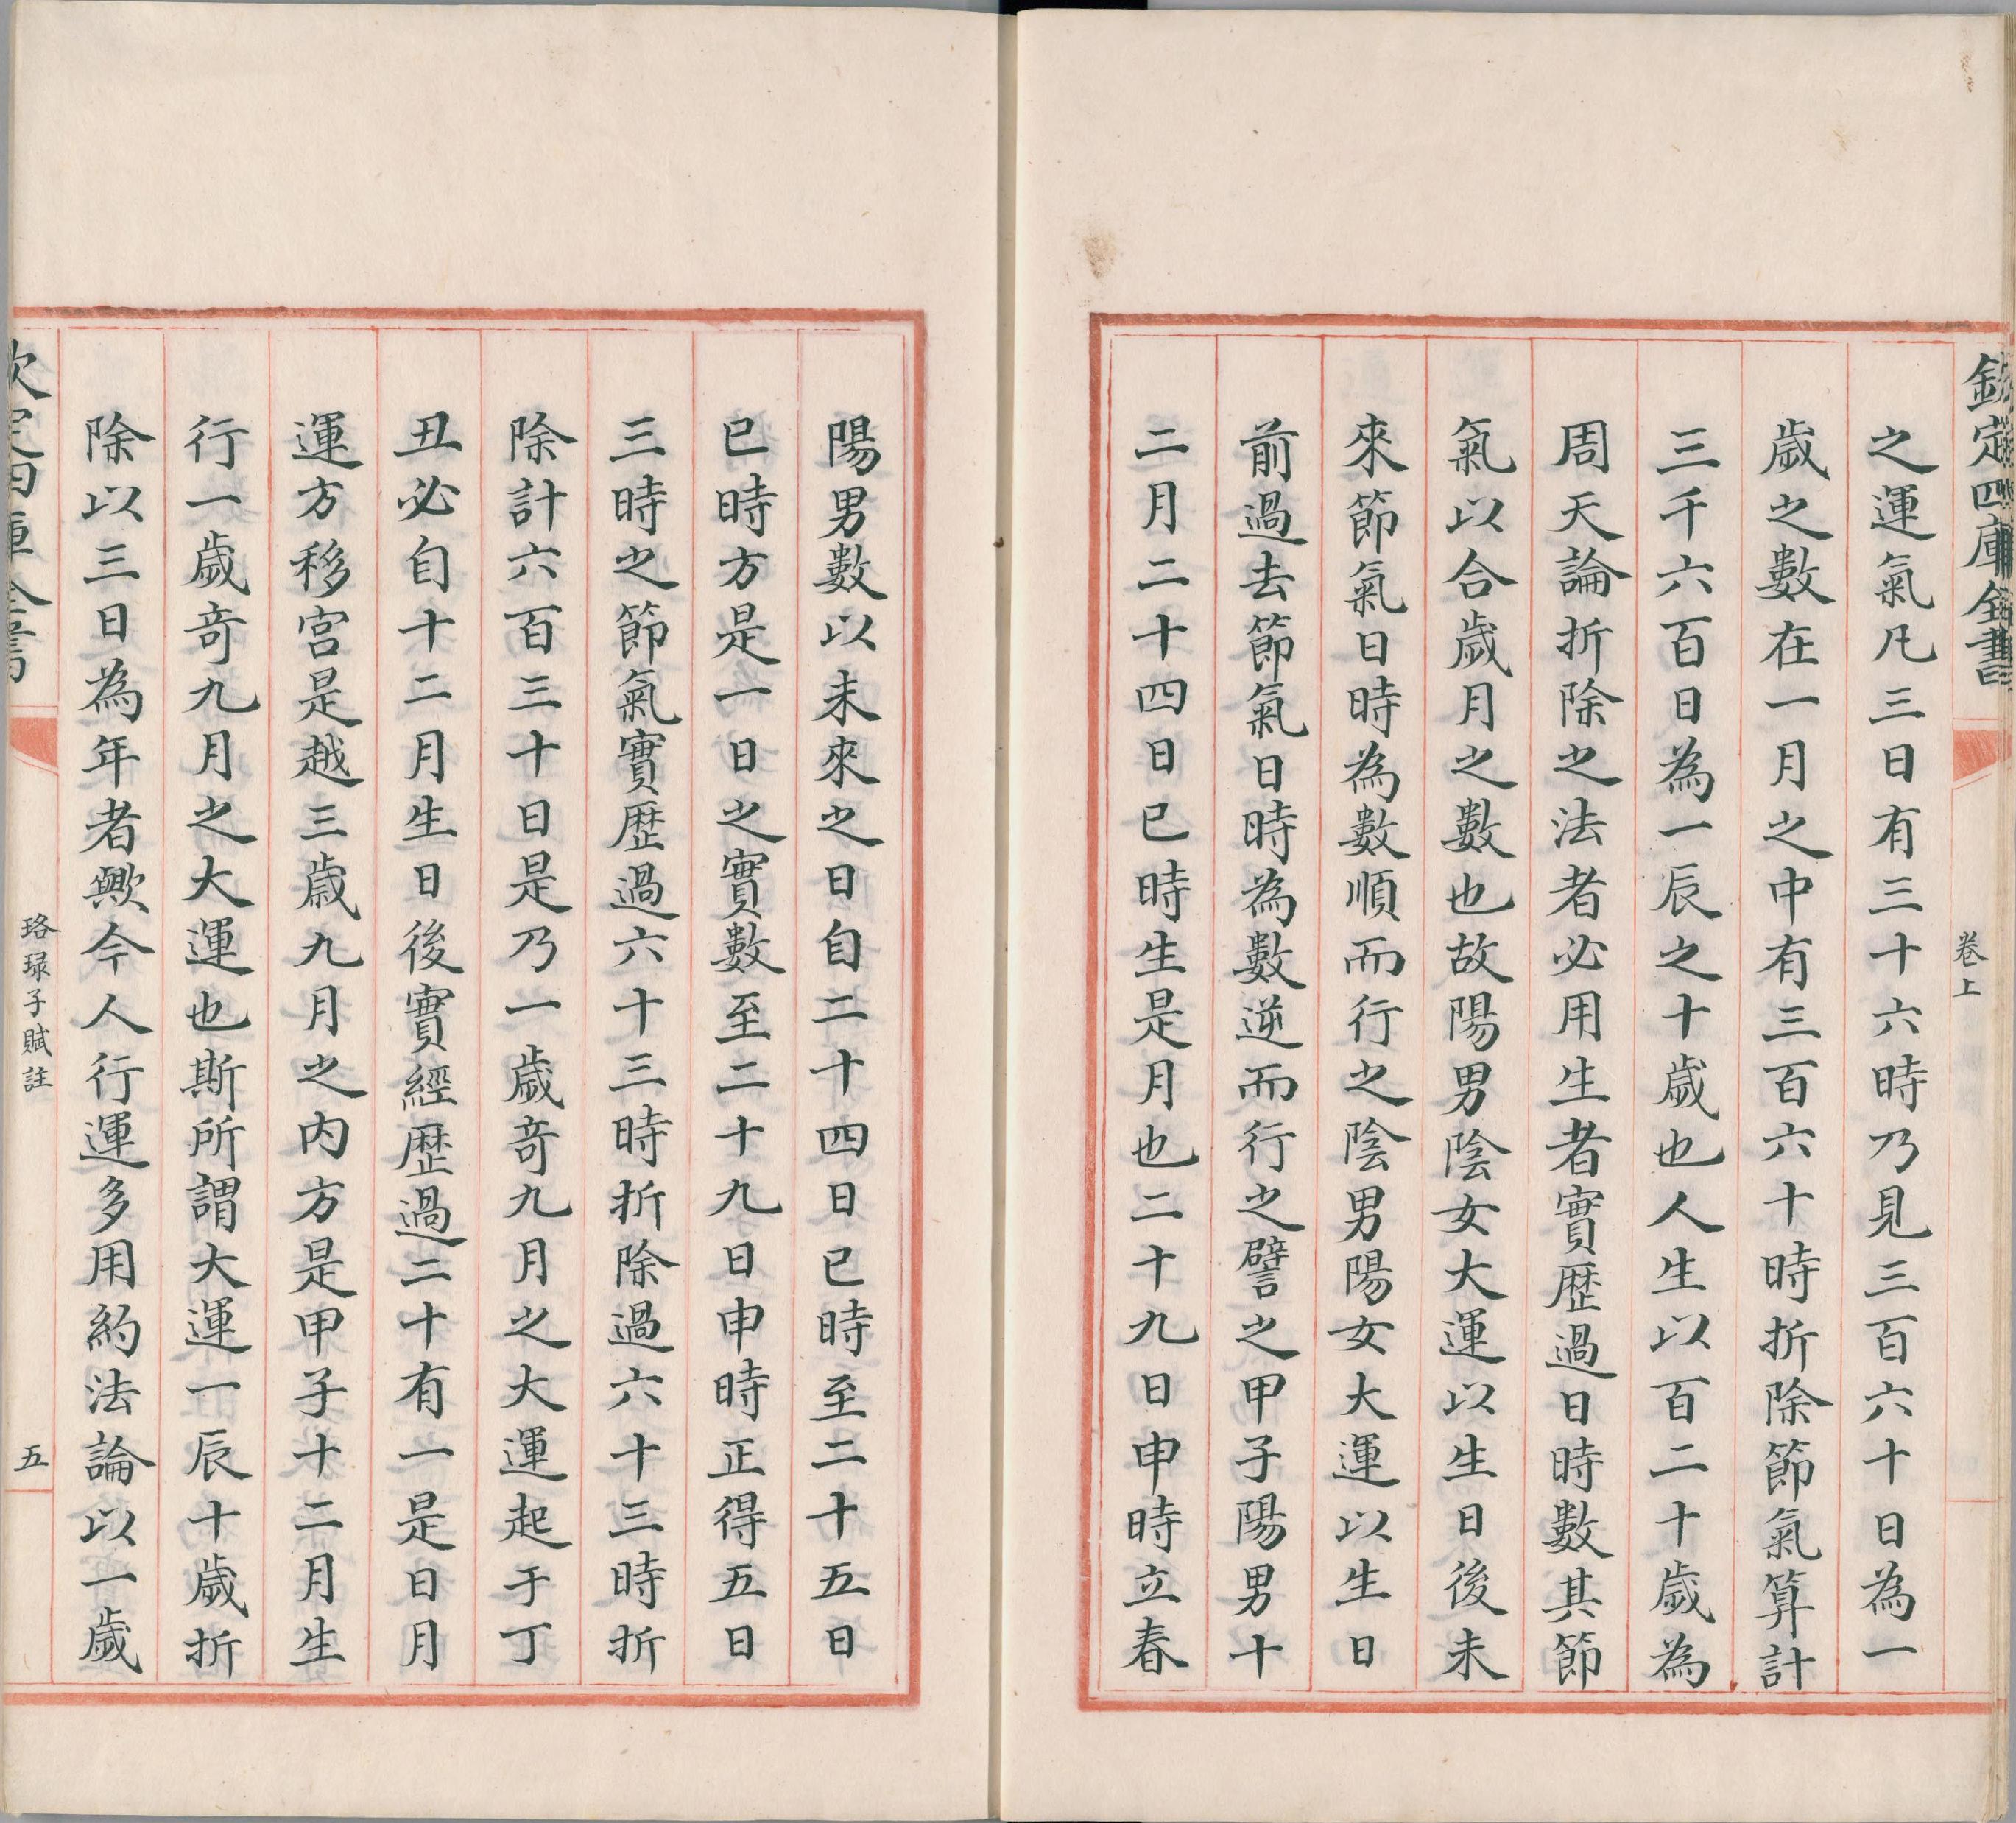 欽定四庫全書
卷上
之運氣凡三日有三十六時乃見三百六十日為一
歲之數在一月之中有三百六十時折除節氣算計
三千六百日為一辰之十歲也人生以百二十歲為
周天論折除之法者必用生者實歴過日時數其節
氣以合歲月之數也故陽男陰女大運以生日後未
來節氣日時為數順而行之陰男陽女大運以生日
前過去節氣日時為數逆而行之譬之甲子陽男十
二月二十四日巳時生是月也二十九日申時立春
陽男數以未來之日自二十四日巳時至二十五日
巳時方是一日之實數至二十九日申時正得五日
三時之節氣實歴過六十三時折除過六十三時折
除計六百三十日是乃一歲竒九月之大運起于丁
丑必自十二月生日後實經歴過二十有一是日月
運方移宫是越三歲九月之内方是甲子十二月生
行一歲竒九月之大運也斯所謂大運一辰十歲折
除以三日為年者歟今人行運多用約法論以一歲
欽定四庫全書
珞琭子賦註
五